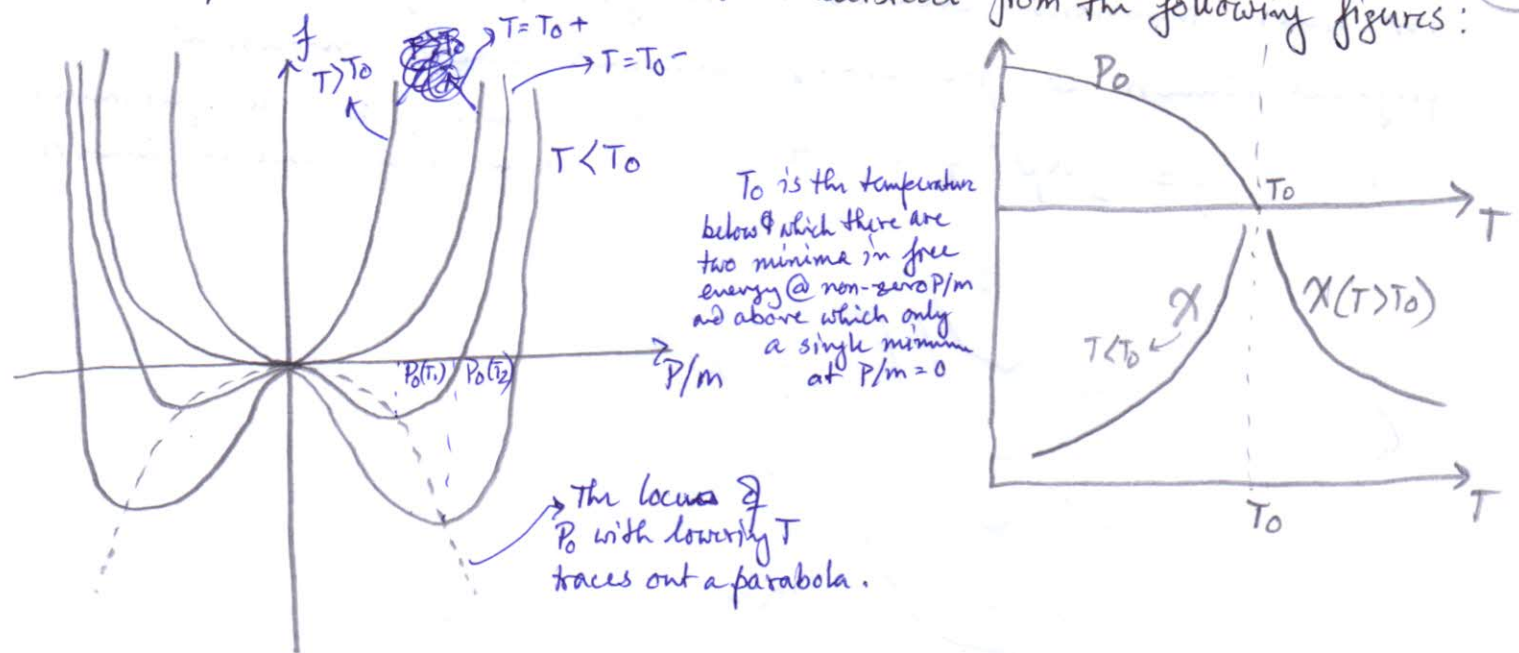 from the following figures:
f
T>T₀
T=T₀+
T=T₀-
T<T₀
P₀(T₁) P₀(T₂)
P/m
T₀ is the temperature
below which there are
two minima in free
energy @ non-zero P/m
and above which only
a single minimum
at P/m=0
The locus of
P₀ with lowering T
traces out a parabola.
P₀
T₀
T
χ
T<T₀
χ(T>T₀)
T₀
T